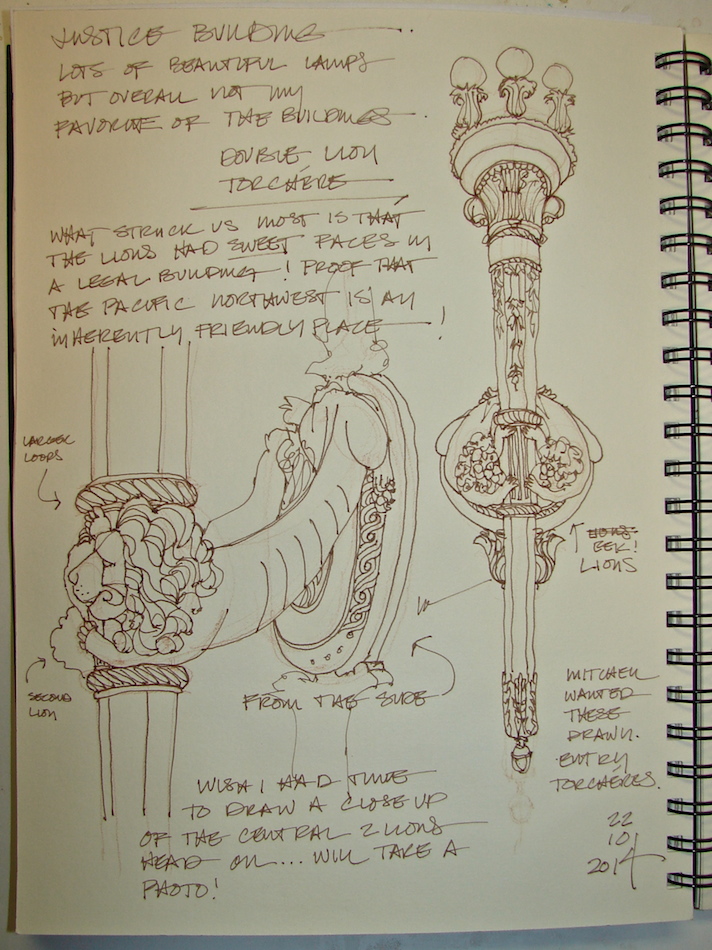 JUSTICE BUILDING
LOTS OF BEAUTIFUL LAMPS
BUT OVERALL NOT MY
FAVORITE OF THE BUILDINGS.
DOUBLE LION
TORCHÈRE
WHAT STRUCK US MOST IS THAT
THE LIONS HAD SWEET FACES IN
A LEGAL BUILDING! PROOF THAT
THE PACIFIC NORTHWEST IS AN
INHERENTLY FRIENDLY PLACE!
LARGER
LOOPS
EEK!
LIONS
SECOND
LION
FROM THE SIDE
MITCHELL
WANTED
THESE
DRAWN.
ENTRY
TORCHÈRES.
WISH I HAD TIME
TO DRAW A CLOSE UP
OF THE CENTRAL 2 LIONS
HEAD ON... WILL TAKE A
PHOTO!
22
10
2014